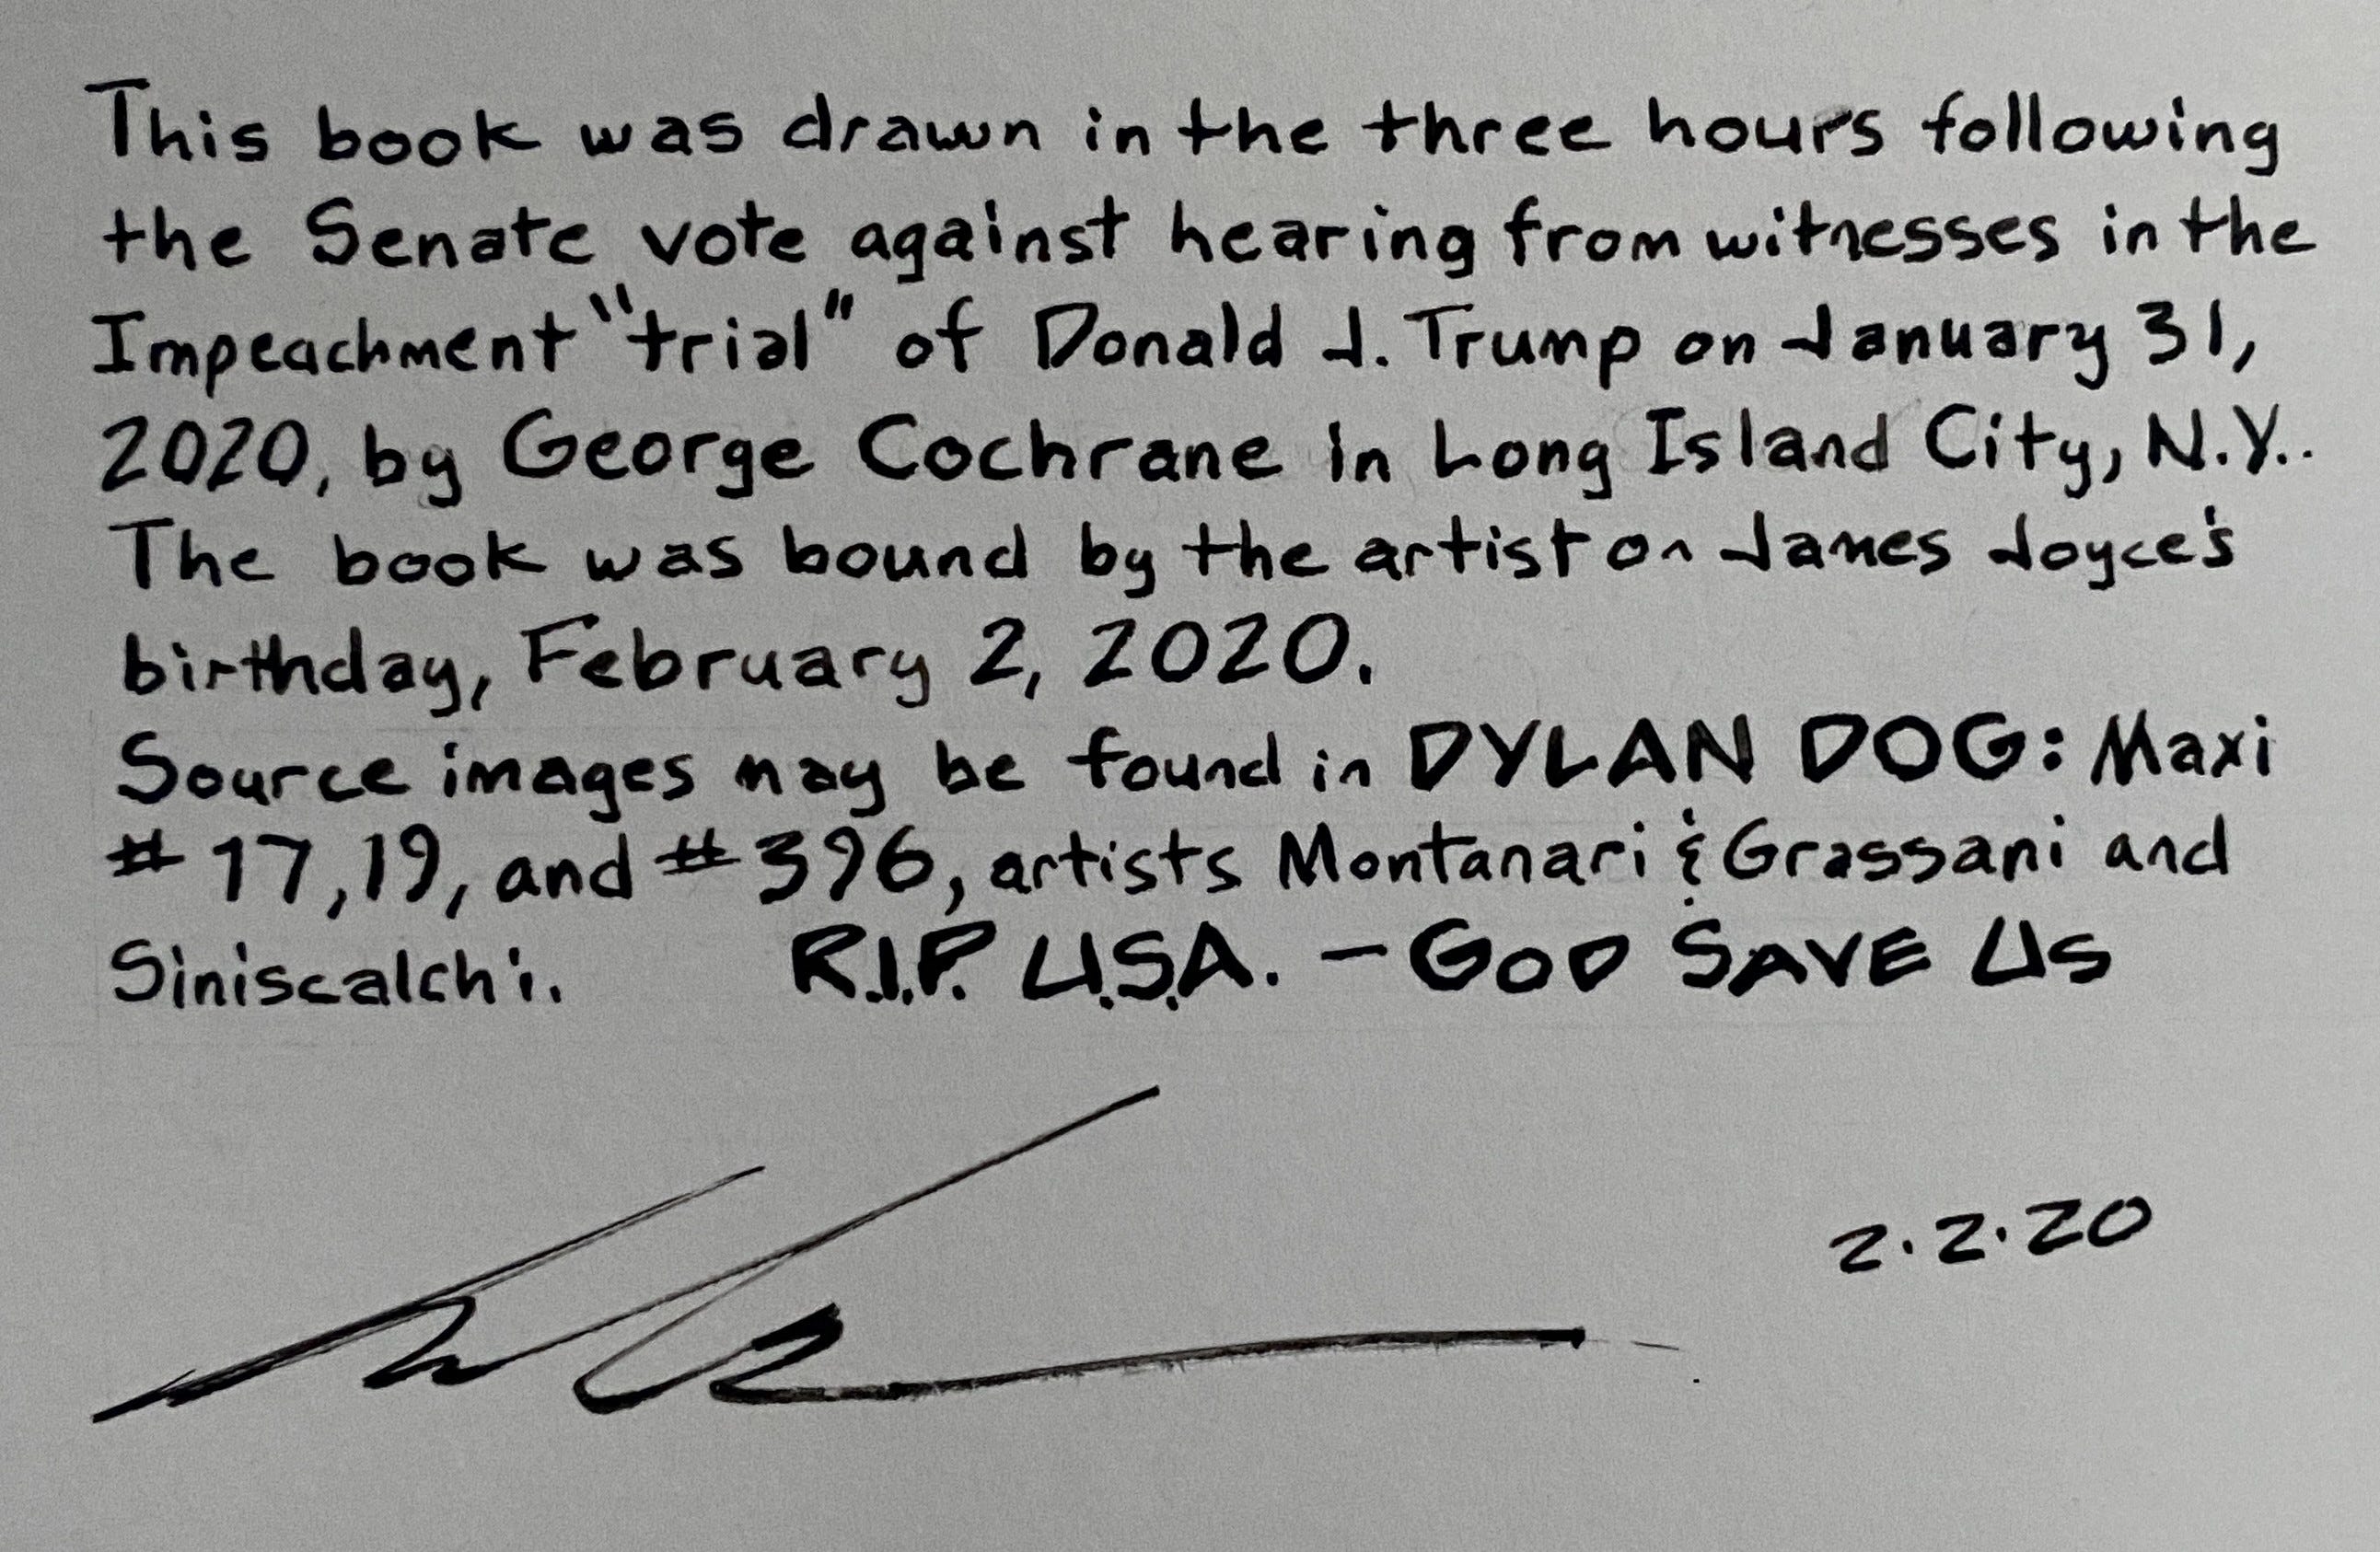 This book was drawn in the three hours following
the Senate vote against hearing from witnesses in the
Impeachment "trial" of Donald J. Trump on January 31,
2020, by George Cochrane in Long Island City, N.Y..
The book was bound by the artist on James Joyce's
birthday, February 2, 2020.
Source images may be found in DYLAN DOG: Maxi
# 17, 19, and # 396, artists Montanari & Grassani and
Siniscalchi. R.I.P. U.S.A. - GOD SAVE US
2.2.20